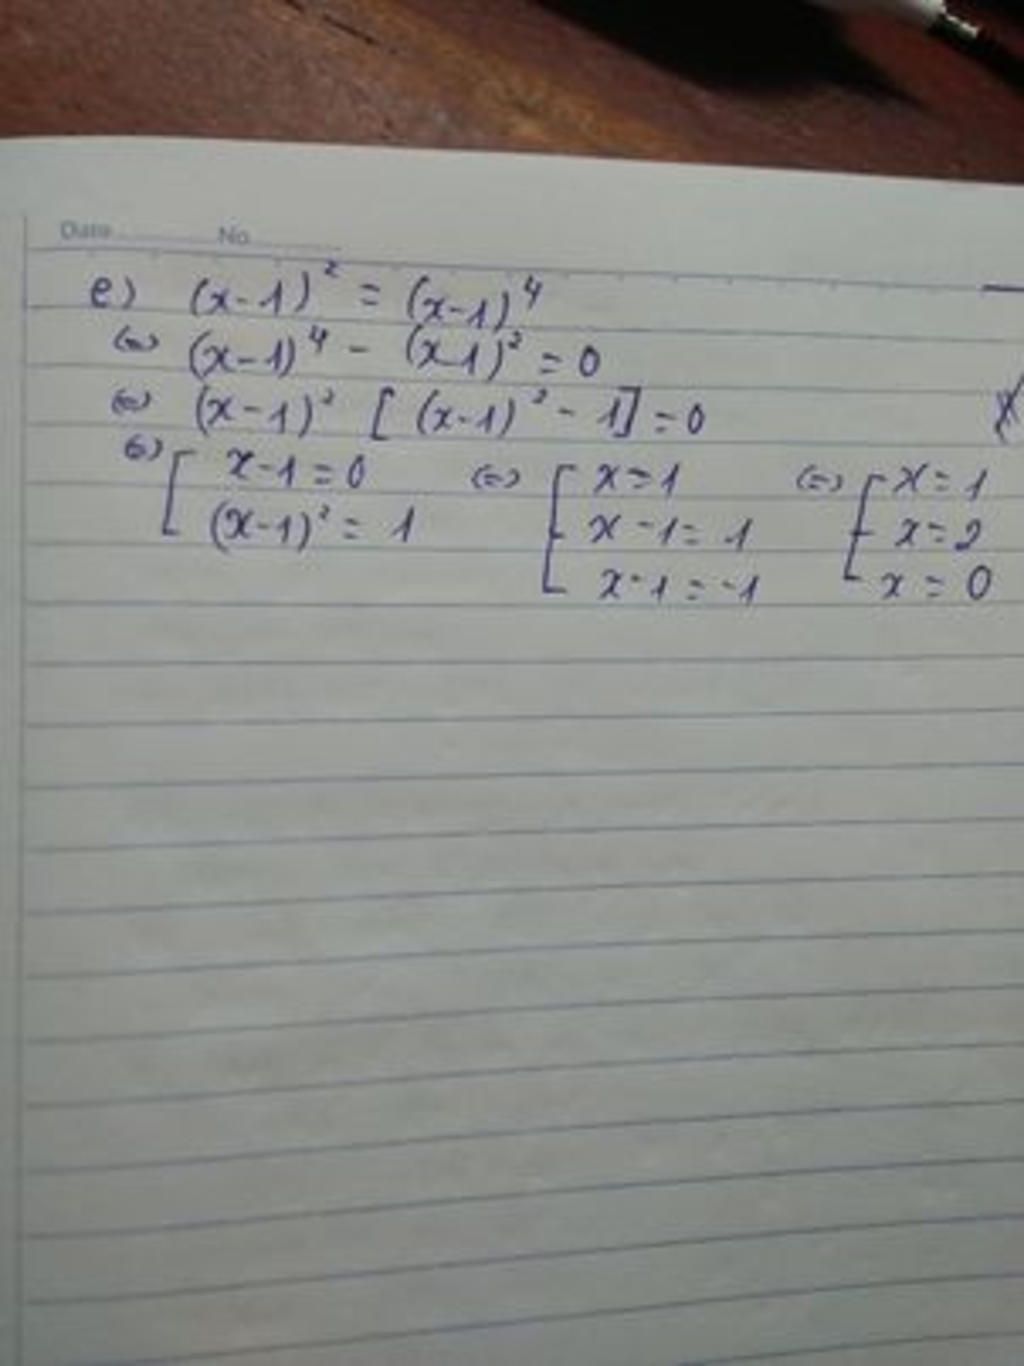 Date No
e) (x-1)² = (x-1)⁴
(=) (x-1)⁴ - (x-1)² = 0
(=) (x-1)² [(x-1)² - 1] = 0
(=) [ x-1=0 (=) [ x=1 (=) [ x=1
(x-1)² = 1 x-1=1 x=2
x-1=-1 x=0